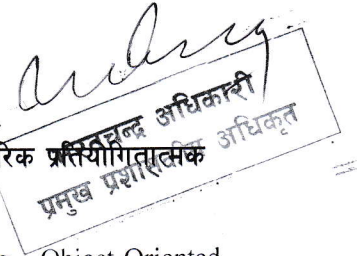 अधिकारी
रिक प्रतियोगितात्मक
प्रमुख प्रशासकीय अधिकृत
Object Oriented